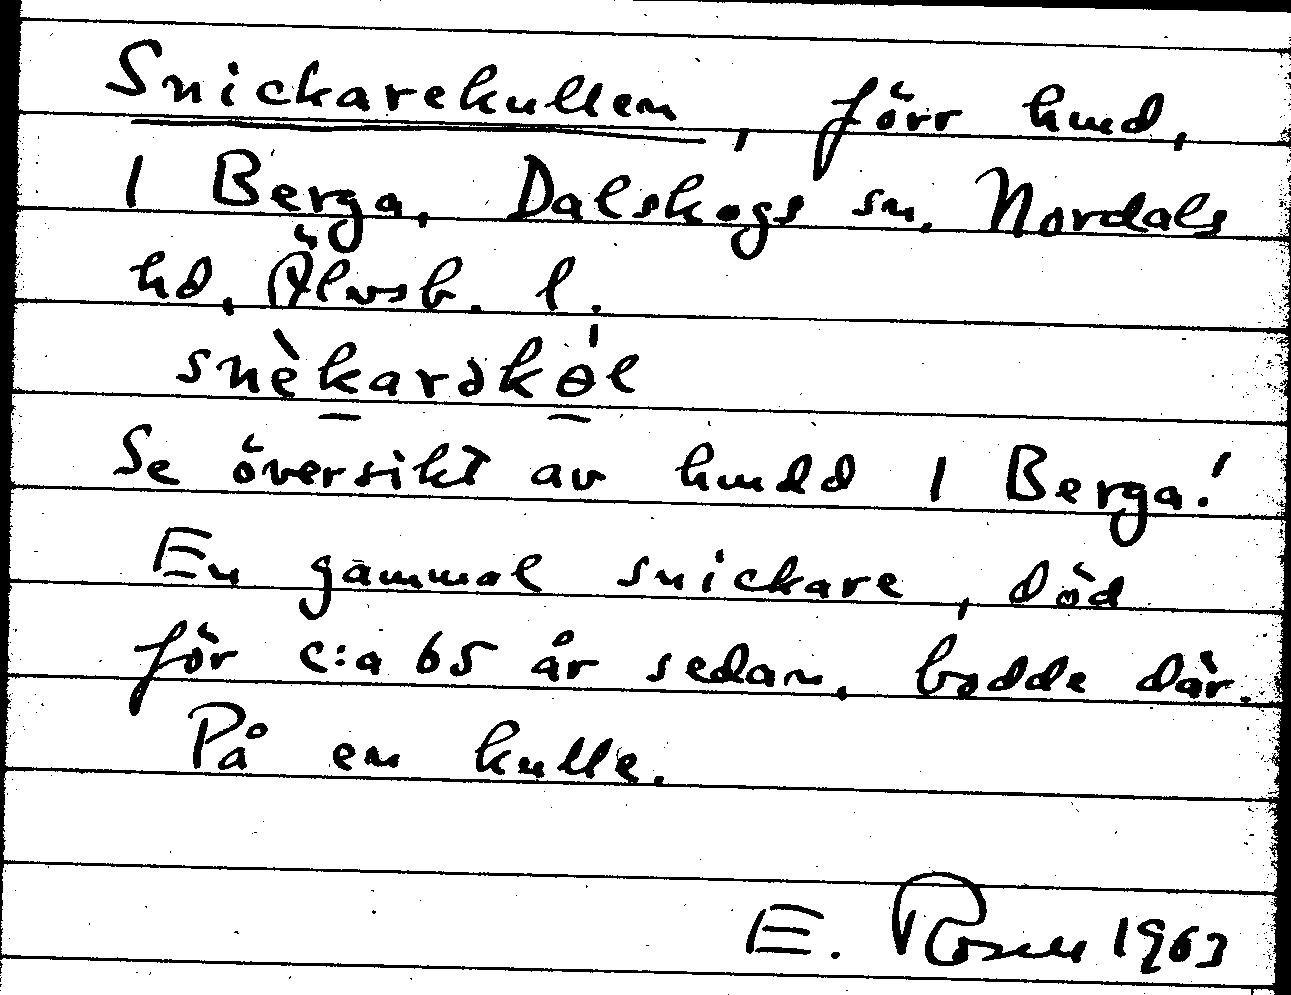 Snickarekullen, förr hmd,
1 Berga, Dalskogs sn. Nordals
hd, Älvsb. l.
snè̱karəḵɵ́l
Se översikt av hmdd 1 Berga!
En gammal snickare, död
för c:a 65 år sedan, bodde där.
På en kulle.
E. Rosell 1963